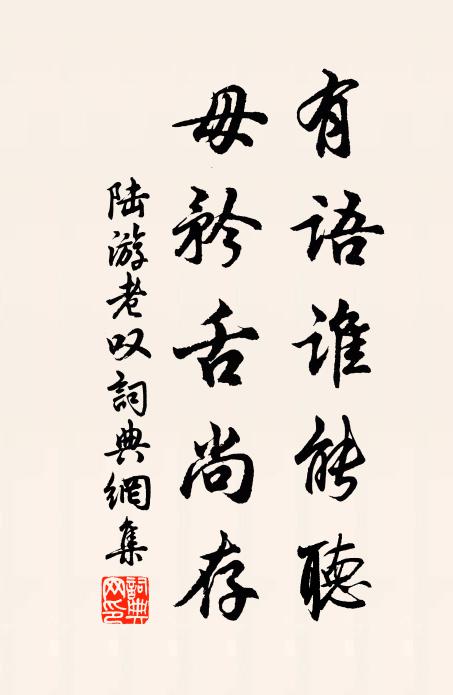 有语谁能聽
毋矜舌尚存
陆游老叹詞典網集
詞典网印